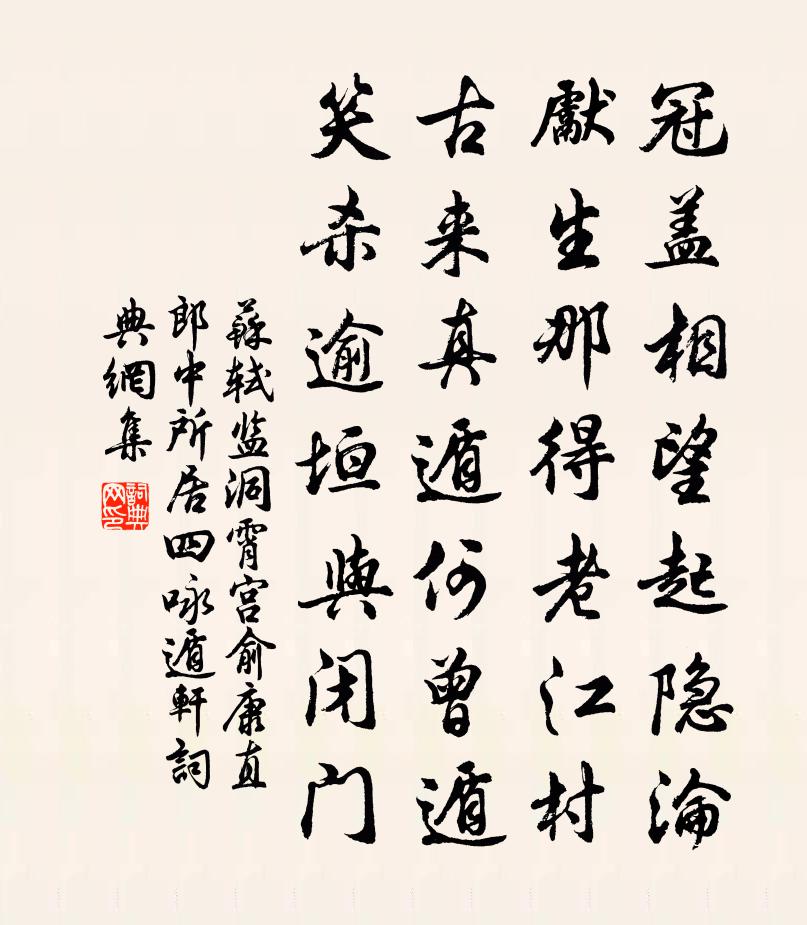 冠盖相望起隐沦
獻生那得老江村
古来真遁何曾遁
笑杀逾垣與闭门
蘇轼监洞霄宫俞康直
郎中所居四咏遁軒詞
典網集
詞典网印